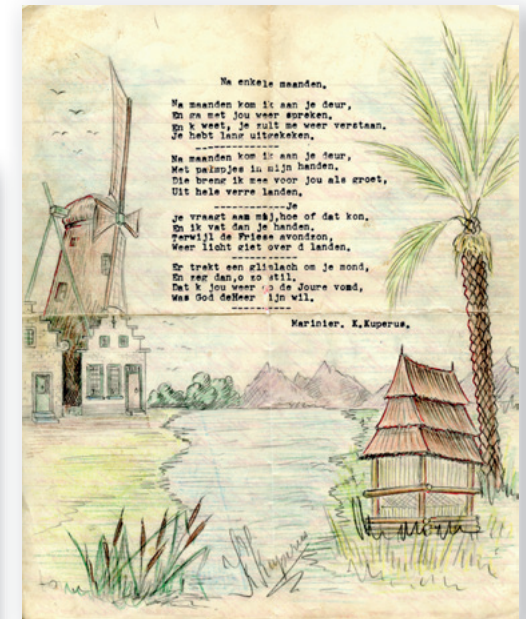 Na enkele maanden.
Na maanden kom ik aan je deur,
En ga met jou weer spreken.
En k weet, je zult me weer verstaan.
Je hebt lang uitgekeken.
--------------
Na maanden kom ik aan je deur,
Met palmpjes in mijn handen.
Die breng ik mee voor jou als groet,
Uit hele verre landen.
--------------Je
je vraagt aam mij,hoe of dat kon.
En ik vat dan je handen.
Terwijl de Friese avondzon,
Weer licht giet over d landen.
--------------
Er trekt een glimlach om je mond,
En zeg dan,o zo stil.
Dat k jou weer op de Joure vond,
Was God deHeer zijn wil.
----------
Marinier. K.Kuperus.
K Kuperus